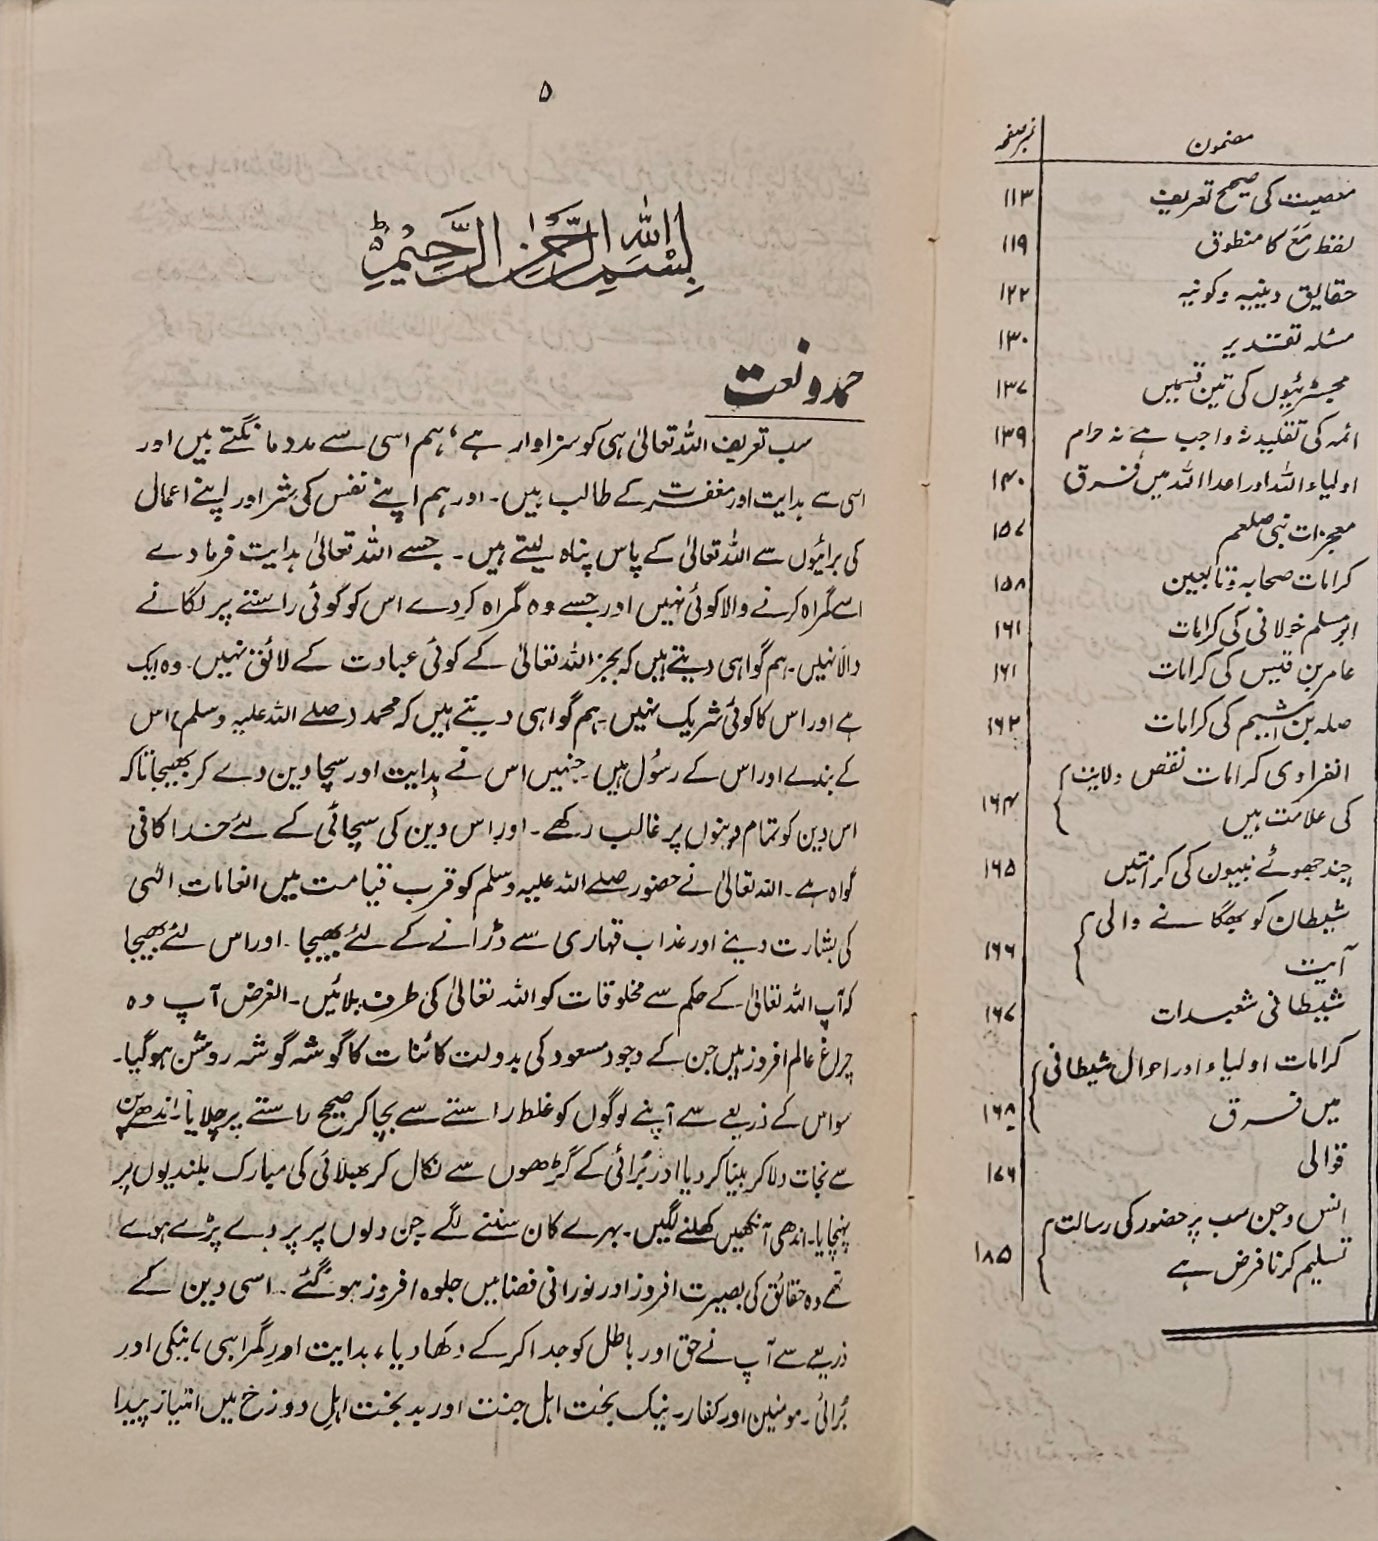 مضمون نمبر صفحہ
معصیت کی صحیح تعریف ۱۱۳
لفظ مَعَ کا منطوق ۱۱۹
حقایق دینیہ وکونیہ ۱۲۲
مسئلہ تقدیر ۱۳۰
مجسٹریٹوں کی تین قسمیں ۱۳۷
ائمہ کی تقلید نہ واجب ہے نہ حرام ۱۳۹
اولیاء اللہ اور اعداء اللہ میں فرق ۱۴۰
معجزات نبی صلعم ۱۵۷
کرامات صحابہ و تابعین ۱۵۸
ابو مسلم خولانی کی کرامات ۱۶۱
عامر بن قیس کی کرامات ۱۶۱
صلہ بن اشیم کی کرامات ۱۶۲
انفرادی کرامات نقص ولایت
کی علامت ہیں ۱۶۴
چند جھوٹے نبیوں کی کرامتیں ۱۶۵
شیطان کو بھگانے والی
آیت ۱۶۶
شیطانی شعبدات ۱۶۷
کرامات اولیاء اور احوال شیطانی
میں فرق ۱۶۸
قوالی ۱۷۶
انس وجن سب پر حضور کی رسالت
تسلیم کرنا فرض ہے ۱۸۵
۵
بِسْمِ اللهِ الرَّحْمٰنِ الرَّحِيْمِ ط
حمد و نعت
سب تعریف اللہ تعالیٰ ہی کو سزاوار ہے، ہم اسی سے مدد مانگتے ہیں اور
اسی سے ہدایت اور مغفرت کے طالب ہیں۔ اور ہم اپنے نفس کی شر اور اپنے اعمال
کی برائیوں سے اللہ تعالیٰ کے پاس پناہ لیتے ہیں۔ جسے اللہ تعالیٰ ہدایت فرمادے
اسے گمراہ کرنے والا کوئی نہیں اور جسے وہ گمراہ کردے اس کو کوئی راستے پر لگانے
والا نہیں۔ ہم گواہی دیتے ہیں کہ بجز اللہ تعالیٰ کے کوئی عبادت کے لائق نہیں۔ وہ ایک
ہے اور اس کا کوئی شریک نہیں۔ ہم گواہی دیتے ہیں کہ محمد (صلے اللہ علیہ وسلم) اس
کے بندے اور اس کے رسُول ہیں۔ جنہیں اس نے ہدایت اور سچا دین دے کر بھیجا تاکہ
اس دین کو تمام دینوں پر غالب رکھے۔ اور اس دین کی سچائی کے لئے خدا کافی
گواہ ہے۔ اللہ تعالیٰ نے حضور صلے اللہ علیہ وسلم کو قرب قیامت میں انعامات الٰہی
کی بشارت دینے اور عذاب قہاری سے ڈرانے کے لئے بھیجا۔ اور اس لئے بھیجا
کہ آپ اللہ تعالیٰ کے حکم سے مخلوقات کو اللہ تعالیٰ کی طرف بلائیں۔ الغرض آپ وہ
چراغ عالم افروز ہیں جن کے وجود مسعود کی بدولت کائنات کا گوشہ گوشہ روشن ہوگیا۔
سو اس کے ذریعے سے آپنے لوگوں کو غلط راستے سے بچا کر صحیح راستے پر چلایا۔ اندھے پن
سے نجات دلا کر بینا کردیا اور بُرائی کے گڑھوں سے نکال کر بھلائی کی مبارک بلندیوں پر
پہنچایا۔ اندھی آنکھیں کھلنے لگیں۔ بہرے کان سننے لگے جن دلوں پر پردے پڑے ہوے
تھے وہ حقائق کی بصیرت افروز اور نورانی فضا میں جلوہ افروز ہو گئے۔ اسی دین کے
ذریعے سے آپ نے حق اور باطل کو جدا کرکے دکھادیا، ہدایت اور گمراہی، نیکی اور
بُرائی۔ مومنین اور کفار۔ نیک بخت اہل جنت اور بد بخت اہلِ دوزخ میں امتیاز پیدا